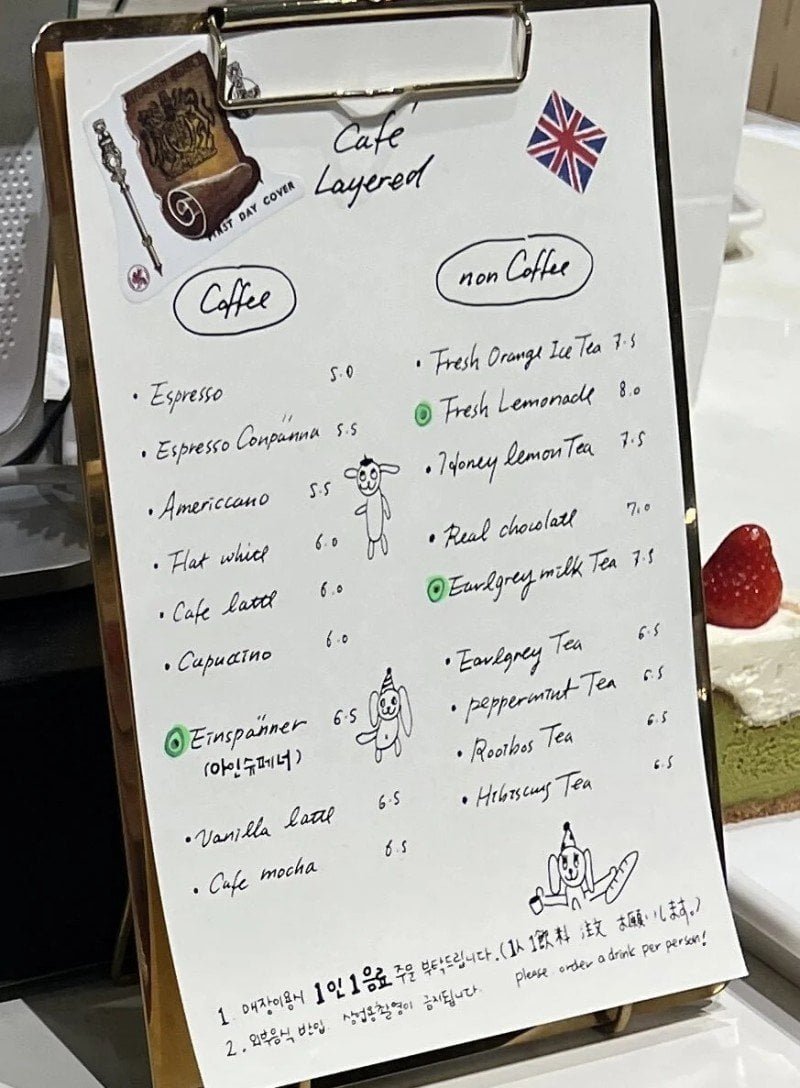 FIRST DAY COVER
Café
Layered
Coffee
• Espresso 5.0
• Espresso Conpänna 5.5
• Americcano 5.5
• Flat white 6.0
• Cafe latte 6.0
• Capuccino 6.0
Einspänner 6.5
(아인슈페너)
• Vanilla latte 6.5
• Cafe mocha 6.5
non Coffee
• Fresh Orange Ice Tea 7.5
Fresh Lemonade 8.0
• Honey lemon Tea 7.5
• Real chocolate 7.0
Earlgrey milk Tea 7.5
• Earlgrey Tea 6.5
• peppermint Tea 6.5
• Rooibos Tea 6.5
• Hibiscus Tea 6.5
1. 매장이용시 1인 1음료 주문 부탁드립니다. (1人 1飲料 注文 お願いします。)
please order a drink per person!
2. 외부음식 반입 상업용촬영이 금지됩니다.